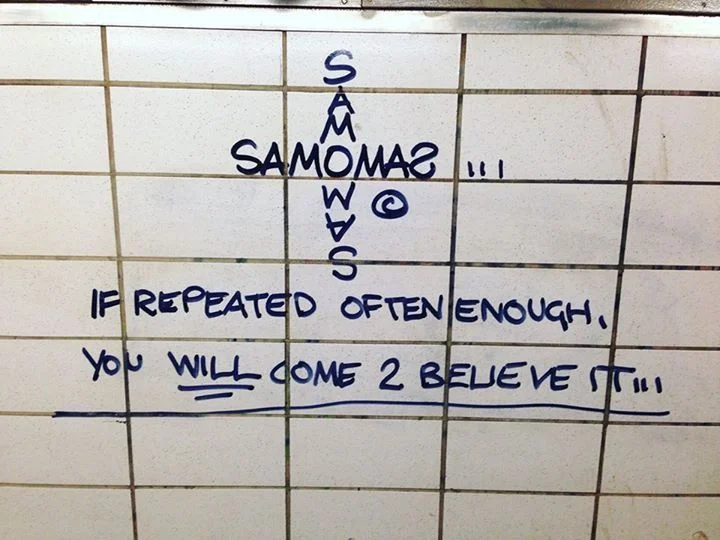 S
A
M
SAMOMAS ...
W ©
A
S
IF REPEATED OFTEN ENOUGH,
YOU WILL COME 2 BELIEVE IT...